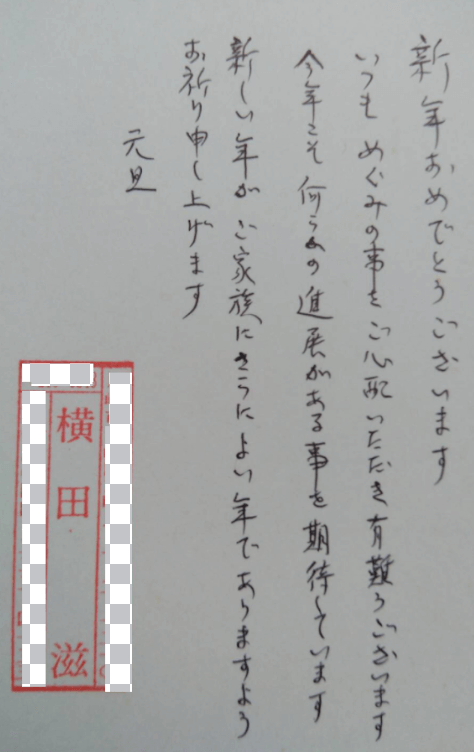 新年おめでとうございます
いつもめぐみの事をご心配いただき有難うございます
今年こそ何らかの進展がある事を期待しています
新しい年がご家族にさらによい年でありますよう
お祈り申し上げます
元旦
横田滋